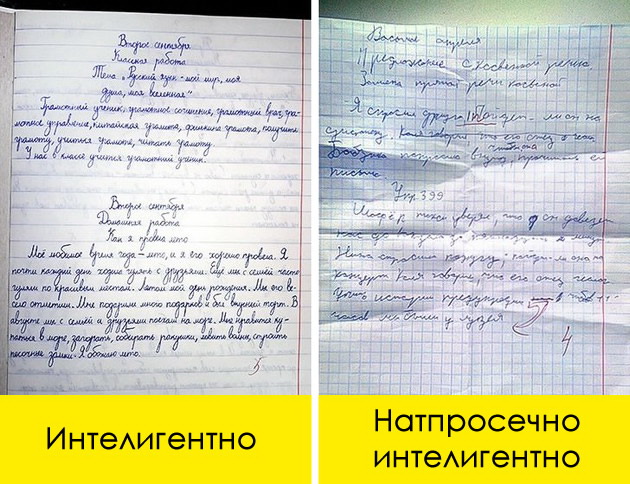 Второе сентября
Классная работа
Тема „Русский язык - мой мир, моя
душа, моя вселенная"
Грамотный ученик, грамотное сочинение, грамотный врач, гра-
мотное управление, китайская грамота, филькина грамота, получить
грамоту, учиться грамоте, читать грамоту.
У нас в классе учится грамотный ученик.
Второе сентября
Домашняя работа
Как я провела лето
Моё любимое время года - лето, и я его хорошо провела. Я
почти каждый день ходила гулять с друзьями. Ещё мы с семьёй часто
гуляли по красивым местам. Летом мой день рождения. Мы его ве-
село отметили. Мне подарили много подарков и был вкусный торт. В
августе мы с семьёй и друзьями поехали на море. Мне нравится ку-
паться в море, загорать, собирать ракушки, ловить волны, строить
песочные замки. Я обожаю лето.
5
Восьмое апреля
Предложение с косвенной речью
Замена прямой речи косвенной
Я спросил друга,
Бабушка попросила внука, прочитать ей
письмо
Упр 399
Шофёр уверял, что он довезёт
нас до
Нина спросила
Коля говорит, что его отец
Учитель истории предупредил
часов мы были у музея
4
Интелигентно
Натпросечно
интелигентно